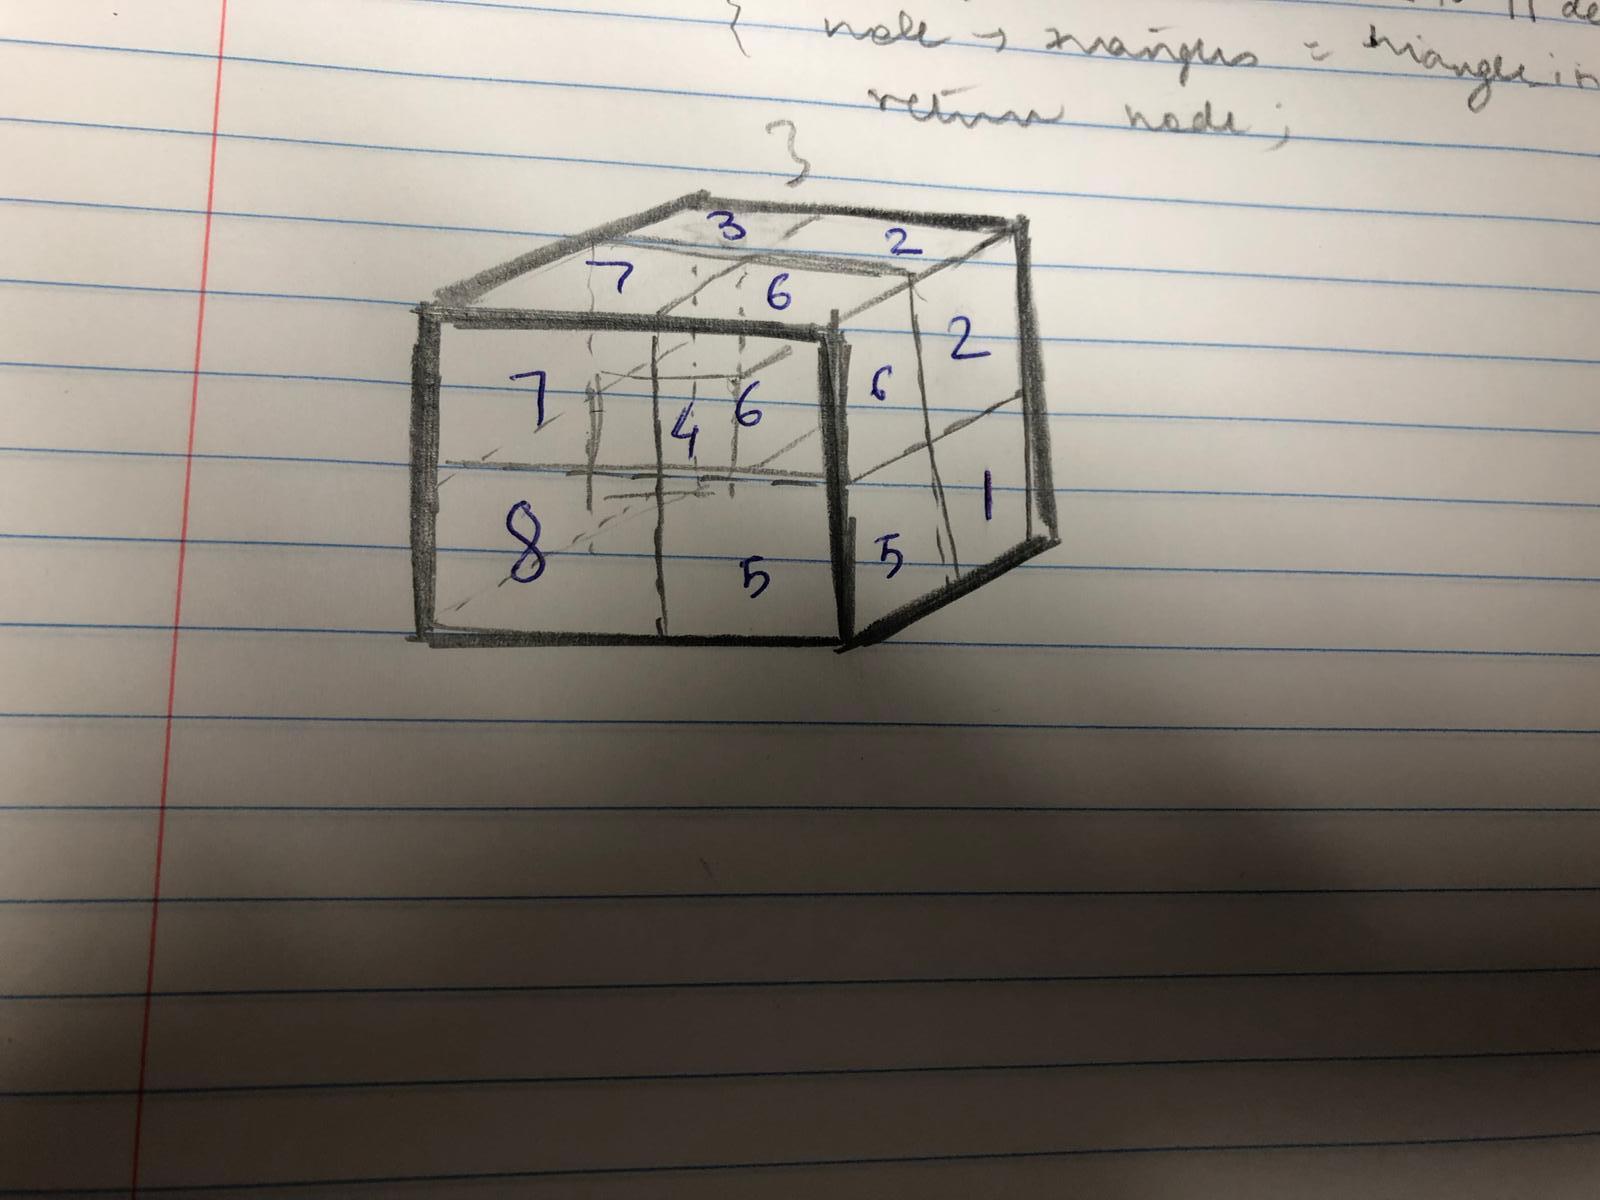 { node → triangles = triangle in
return node ;
}
3 2
7 6
2
7 4 6 6
8 5 5 1